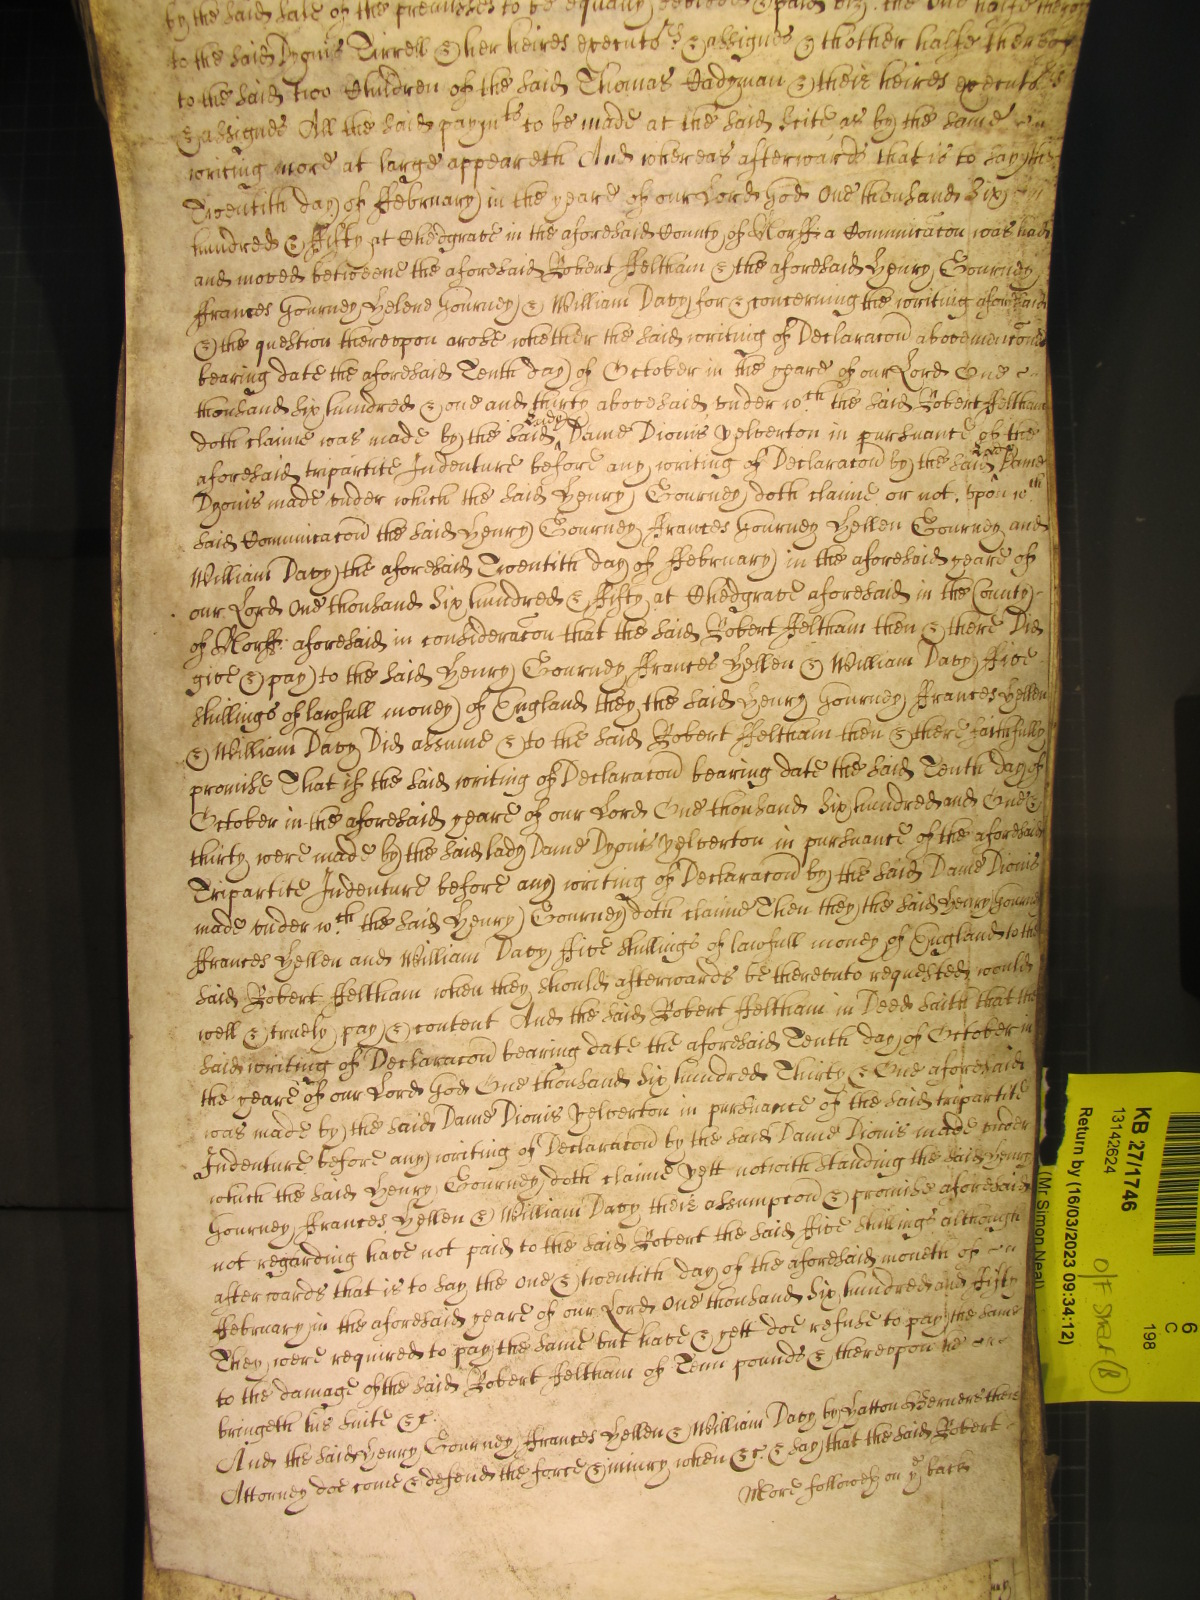 by the said sale of the premisses to be equally devided & paid viz. the one halfe thereof
to the said Dyonis Tirrell & her heires executors & assignes & thother halfe thereof
to the said two Children of the said Thomas Cadyman & theis heires executors
& assignes All the said paymts to be made at the said Scite as by the same
writing more at large appeareth And whereas afterwards that is to say the
Twentith day of ffebruary in the yeare of our Lord God One thousand Six
hundred & ffifty at Chedgrave in the aforesaid County of Norff a Communicacon was had
and moved betweene the aforesaid Robert ffeltham & the aforesaid Henry Gourney
ffrances Gourney Helene Gourney & William Davy for & concerning the writing aforesaid
& the question thereupon arose whether the said writing of Declaracon abovemenconed
bearing date the aforesaid Tenth day of October in the yeare of our Lord One
thousand Six hundred & one and thirty abovesaid under wch the said Robert ffeltham
doth claime was made by the said Lady Dame Dionis Yelverton in pursuance of the
aforesaid tripartite Indenture before any writing of Declaracon by the said Lady Dame
Dyonis made under which the said Henry Gourney doth claime or not, Upon wch
said Communicacon the said Henry Gourney ffrances Gourney Hellen Gourney and
William Davy the aforesaid Twentith day of ffebruary in the aforesaid yeare of
our Lord One thousand Six hundred & ffifty at Chedgrave aforesaid in the County
of Norff: aforesaid in consideracon that the said Robert ffeltham then & there Did
give & pay to the said Henry Gourney ffrances Hellen & William Davy ffive
shillings of lawfull money of England they the said Henry Gourney ffrances Hellen
& William Davy Did assume & to the said Robert ffeltham then & there faithfully
promise That if the said writing of Declaracon bearing date the said Tenth day of
October in the aforesaid yeare of our Lord One thousand Six hundred and One &
thirty were made by the said lady Dame Dyonis Yelverton in pursuance of the aforesaid
Tripartite Indenture before any writing of Declaracon by the said Dame Dionis
made under wch the said Henry Gourney doth claime Then they the said Henry Gourney
ffrances Hellen and William Davy ffive shillings of lawfull money of England to the
said Robert ffeltham when they should afterwards be thereunto requested would
well & truely pay & content And the said Robert ffeltham in Deed saith that the
said writing of Declaracon bearing date the aforesaid Tenth day of October in
the yeare of our Lord God One thousand Six hundred Thirty & One aforesaid
was made by the said Dame Dionis Yelverton in pursuance of the said tripartite
Indenture before any writing of Declaracon by the said Dame Dionis made under
which the said Henry Gourney doth claime yett notwithstanding the said Henry
Gourney ffrances Hellen & William Davy theis assumpcon & promise aforesaid
not regarding have not paid to the said Robert the said ffive shillings although
afterwards that is to say the One & twentith day of the aforesaid moneth of
ffebruary in the aforesaid yeare of our Lord One thousand Six hundred and ffifty
They were required to pay the same but have & yett doe refuse to pay the same
to the damage of the said Robert ffeltham of Tenn pounds & thereupon he
bringeth his suite &c.
And the said Henry Gourney ffrances Hellen & William Davy by Hatton Berners their
Attorney doe come & defend the force & iniury when &c. & say that the said Robert
More followeth on ye back
KB 27/1746
13142624
Return by (16/03/2023 09:34:12)
(Mr Simon Neal)
6
C
198